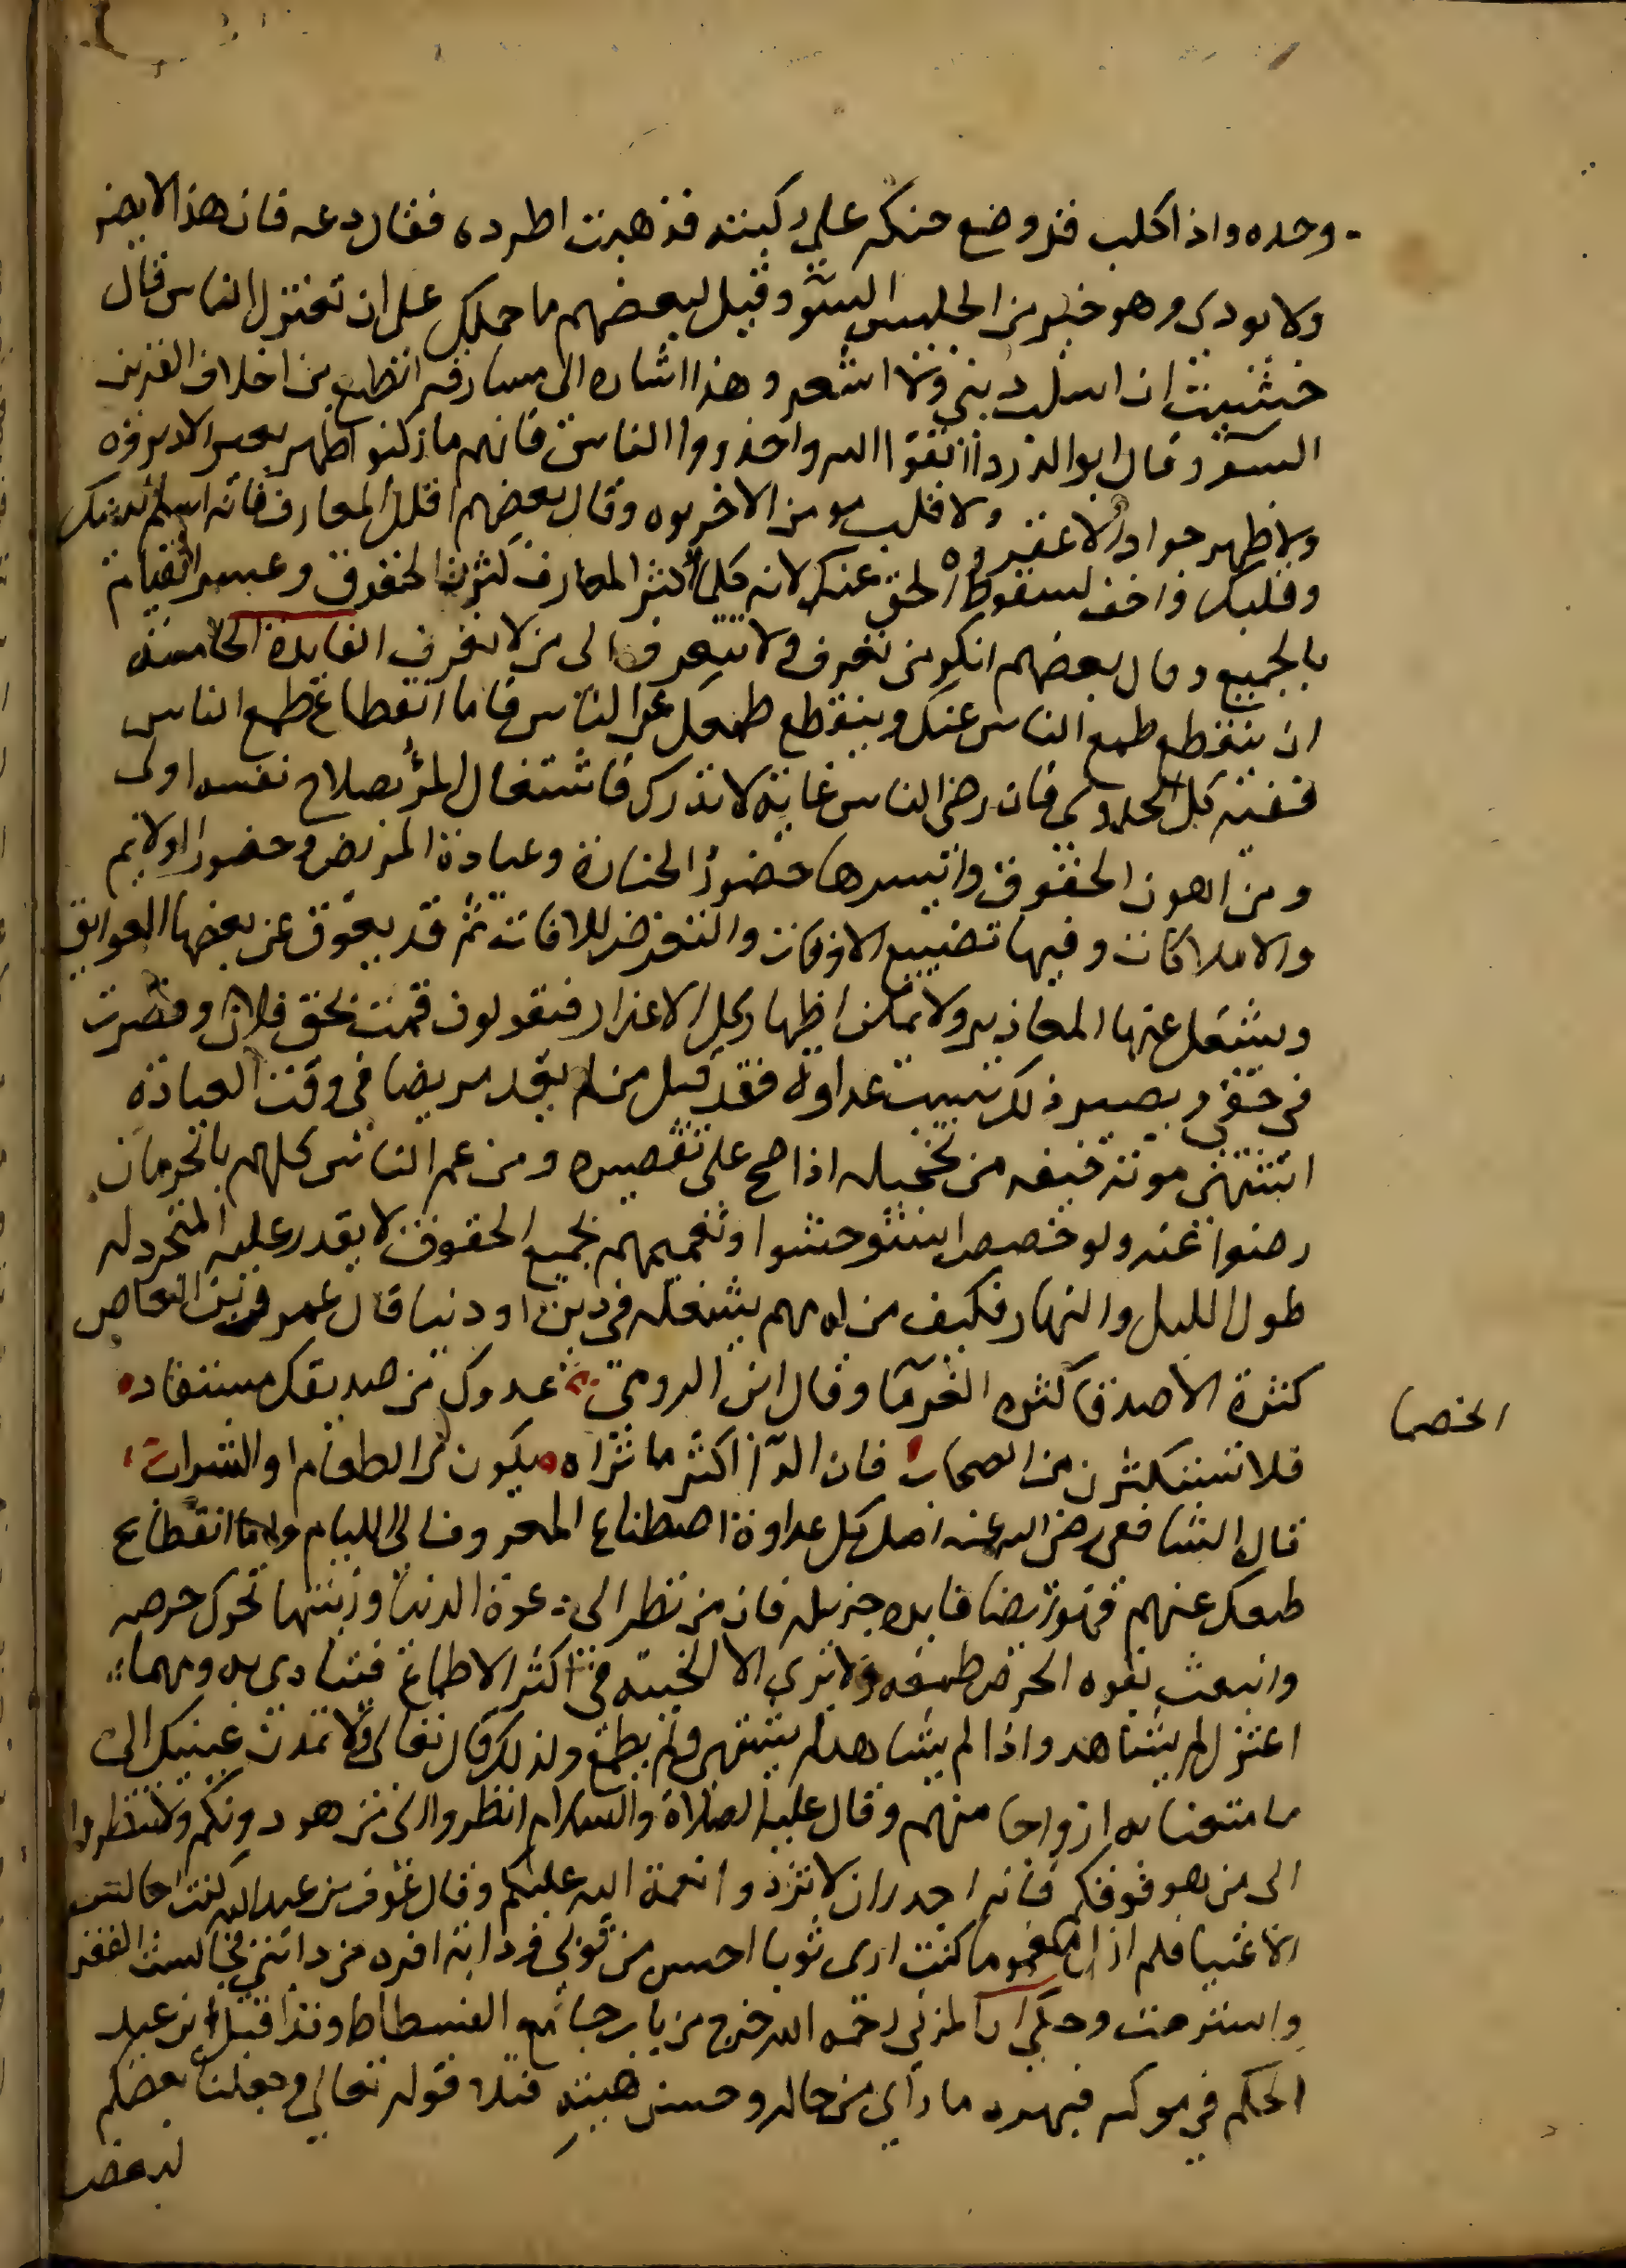 وحده واذا كلب قد وضع حنكه على ركبته فذهبت اطرده فقال دعه فان هذا لا يضر
ولا يودى وهو خير من الجليس السو وقيل لبعضهم ما حملك على ان تعتزل الناس قال
خشيت ان اسلب دينى ولا اشعر وهذا اشاره الى مسارقه الطبع من اخلاق القرين
السو وقال ابو الدردا اتقوا الله واحذروا الناس فانهم ما ركبوا ظهر بعير الا دبروه
ولا ظهر جواد الا عقروه ولا قلب مومن الا خربوه وقال بعضهم اقلل المعارف فانه اسلم لدينك
وقلبك واخف لسقوط الحق عنك لانه كلما كثر المعارف كثرت الحقوق وعسر القيام
بالجميع وقال بعضهم انكر من تعرف ولا تتعرف الى من لا تعرف الفايدة الخامسة
ان ينقطع طمع الناس عنك وينقطع طمعك عن الناس فاما انقطاع طمع الناس
ففيه كل الجدوى فان رضى الناس غاية لا تدرك فاشتغال المرء بصلاح نفسه اولى
ومن اهون الحقوق وايسرها حضور الجنازة وعيادة المريض وحضور الولايم
والاملاكات وفيها تضييع الاوقات والتعرض للافات ثم قد يعوق عن بعضها العوايق
ويستقل عنها المعاذير ولا يمكن اظهار كل الاعذار فيقولون قمت بحق فلان وقصرت
فى حقى ويصير ذلك سبب عداوة فقد قيل من لم يعد مريضا فى وقت العيادة
اشتهى موته خيفه من تخجيله اذا صح على تقصيره ومن عم الناس كلهم بالحرمان
رضوا عنه ولو خصص استوحشوا وتعميمهم بجميع الحقوق لا يقدر عليه المتجرد له
طول الليل والنهار فكيف من له مهم يشغله فى دين او دنيا قال عمرو بن العاص
كثرة الاصدقا كثره الغرما وقال ابن الرومى عدوك من صديقك مستفاد
فلا تستكثرن من الصحاب فان الدا اكثر ما تراه يكون من الطعام او الشراب
قال الشافعى رضى الله عنه اصل كل عداوة اصطناع المعروف الى الليام واما انقطاع
طمعك عنهم فهو ايضا فايده جزيله فان من نظر الى زهرة الدنيا وزينتها تحرك حرصه
وانبعث بقوه الحرص طمعه ولا يرى الا الخيبة فى اكثر الاطماع فيتادى به ومهما
اعتزل لم يشاهد واذا لم يشاهد لم يشتهى ولم يطمع ولذلك قال تعالى ولا تمدن عينيك الى
ما متعنا به ازواجا منهم وقال عليه الصلاة والسلام انظروا الى من هو دونكم ولا تنظروا
الى من هو فوقكم فانه اجدر ان لا تزدروا نعمة الله عليكم وقال عون بن عبد الله كنت اجالس
الاغنيا فلم ازل مغموما كنت ارى ثوبا احسن من ثوبى ودابة افره من دابتى فجالست الفقرا
واسترحت وحكى ان المزنى رحمه الله خرج من باب جامع الفسطاط وقد اقبل ابن عبد
الحكم فى موكبه فبهره ما راى من حاله وحسن هيبته فتلا قوله تعالى وجعلنا بعضكم
لبعض